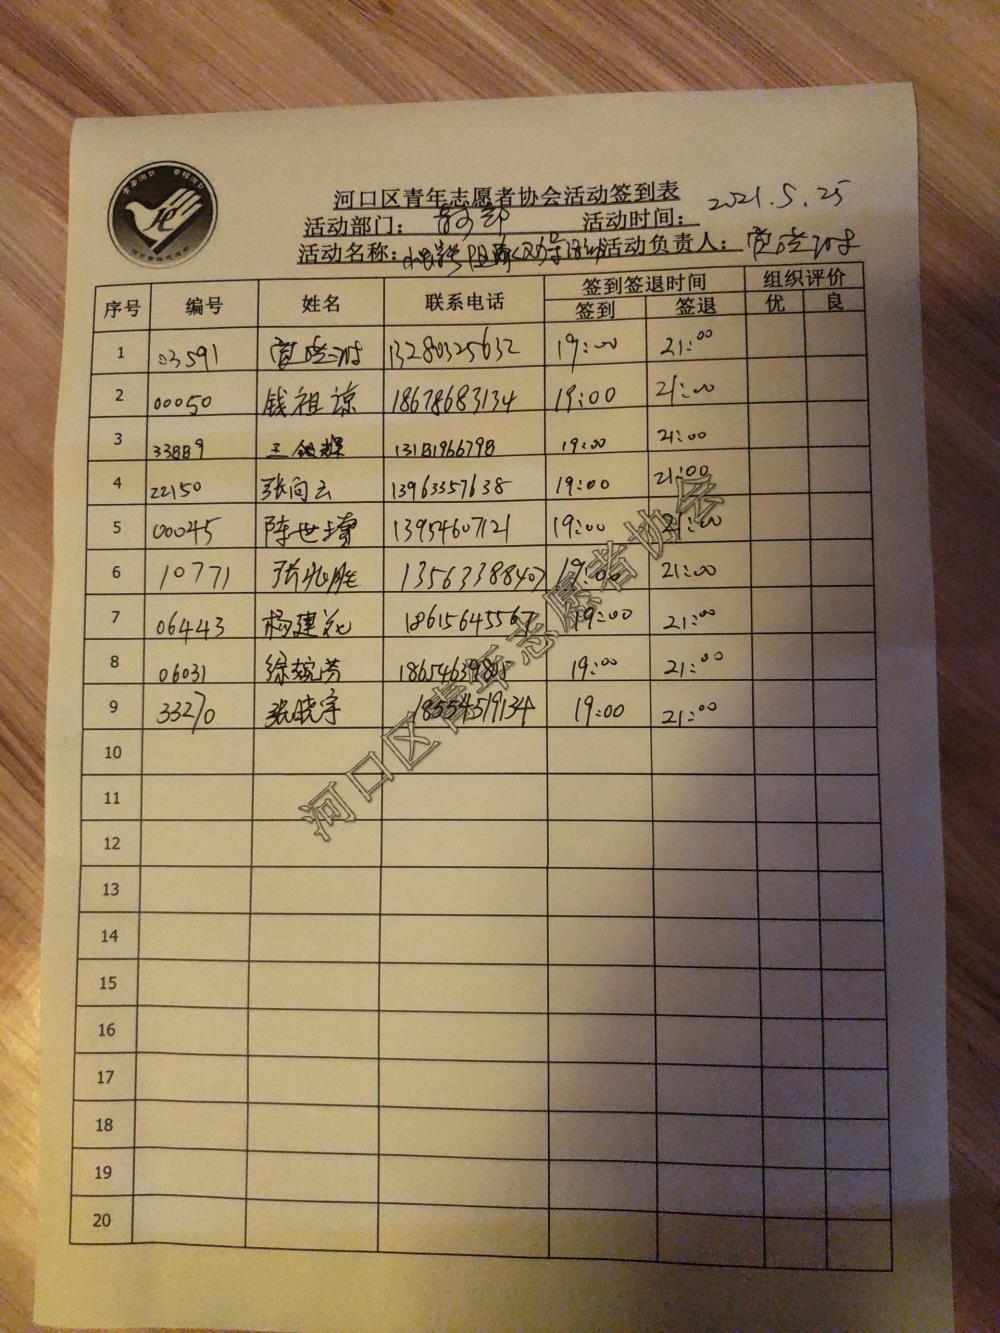 河口区青年志愿者协会活动签到表
活动部门： 活动时间：2021.5.25
活动名称： 活动负责人：
序号 编号 姓名 联系电话 签到签退时间 组织评价
签到 签退 优 良
1 03591 13280325632 19:00 21:00
2 00050 钱祖谅 18678683134 19:00 21:00
3 19:00 21:00
4 22150 张向云 13963357638 19:00 21:00
5 00045 陈世增 13954607121 19:00 21:00
6 10771 张兆胜 13563388407 19:00 21:00
7 06443 杨建花 18615645567 19:00 21:00
8 06031 徐婉芳 19:00 21:00
9 33270 张晓宇 18554519134 19:00 21:00
10
11
12
13
14
15
16
17
18
19
20
河口区青年志愿者协会